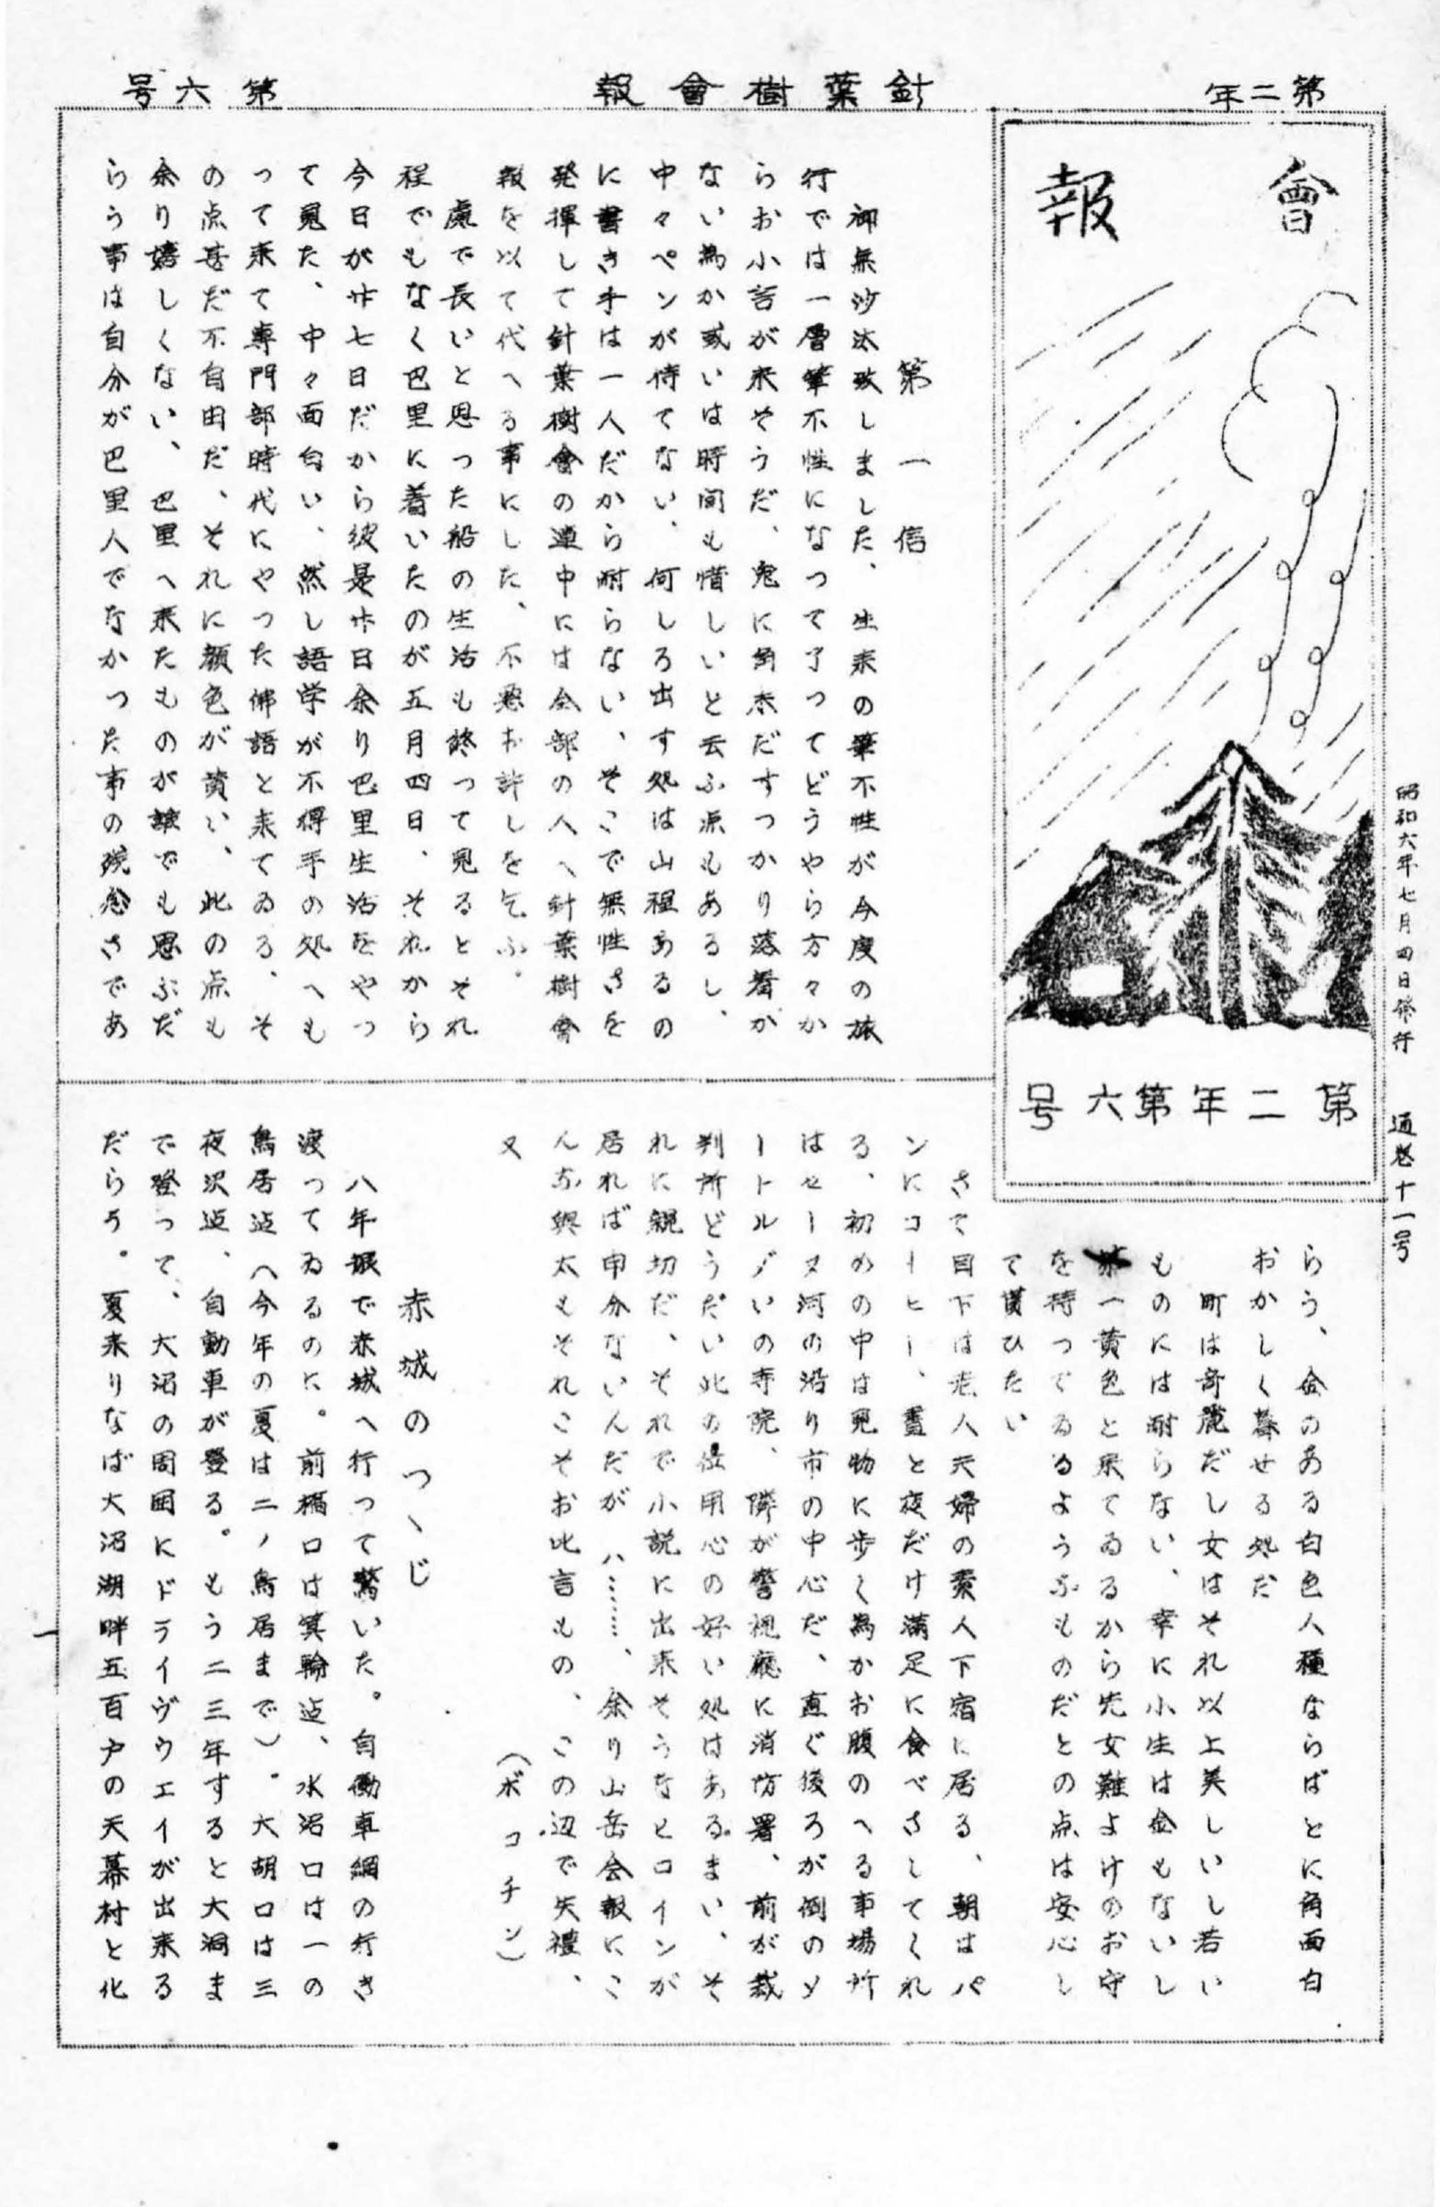 第二年
針葉樹會報
第六号
會報
第二年第六号
昭和六年七月四日發行　通巻十一号
第一信
御無沙汰致しました、生来の筆不性が今度の旅
行では一層筆不性になって了つてどうやら方々か
らお小言が来そうだ、兎に角未だすつかり落着が
ない為か或いは時間も惜しいと云ふ点もあるし、
中々ペンが侍てない、何しろ出す処は山程あるの
に書き手は一人だから耐らない、そこで無性さを
発揮して針葉樹會の連中には全部の人へ針葉樹會
報を以て代へる事にした、不悪お許しを乞ふ。
處で長いと思った船の生活も終って見るとそれ
程でもなく巴里に着いたのが五月四日、それから
今日が廿七日だから彼是廿日余り巴里生活をやっ
て見た、中々面白い、然し語学が不得手の処へも
って来て専門部時代にやった佛語と来てゐる、そ
の点甚だ不自由だ、それに顔色が黄い、此の点も
余り嬉しくない、巴里へ来たものが誰でも思ふだ
らう事は自分が巴里人でなかつた事の残念さであ
らう、金のある白色人種ならばとに角面白
おかしく暮せる処だ
町は奇麗だし女はそれ以上美しいし若い
ものには耐らない、幸に小生は金もないし
第一黄色と来てゐるから先女難よけのお守
を持つてゐるようなものだとの点は安心し
て貰ひたい
さて目下は老人夫婦の素人下宿に居る、朝はパ
ンにコーヒー、晝と夜だけ満足に食べさしてくれ
る、初めの中は見物に歩く為かお腹のへる事場所
はセーヌ河の沿り市の中心だ、直ぐ後ろが例のノ
ートルダムの寺院、隣が警視廳に消防署、前が裁
判所どうだい此の位用心の好い処はあるまい、そ
れに親切だ、それで小説に出来そうなヒロインが
居れば申分ないんだが　ハ……、余り山岳会報にこ
んな與太もそれこそお叱言もの、この辺で失禮、
又　（ボコチン）
赤城のつゝじ
八年振で赤城へ行って驚いた。自働車網の行き
渡ってゐるのに。前橋口は箕輪迠、水沼口は一の
鳥居迠（今年の夏は二ノ鳥居まで）。大胡口は三
夜沢迠、自動車が登る。もう二三年すると大洞ま
で登って、大沼の周囲にドライヴウエイが出来る
だらう。夏来りなば大沼湖畔五百户の天幕村と化
一